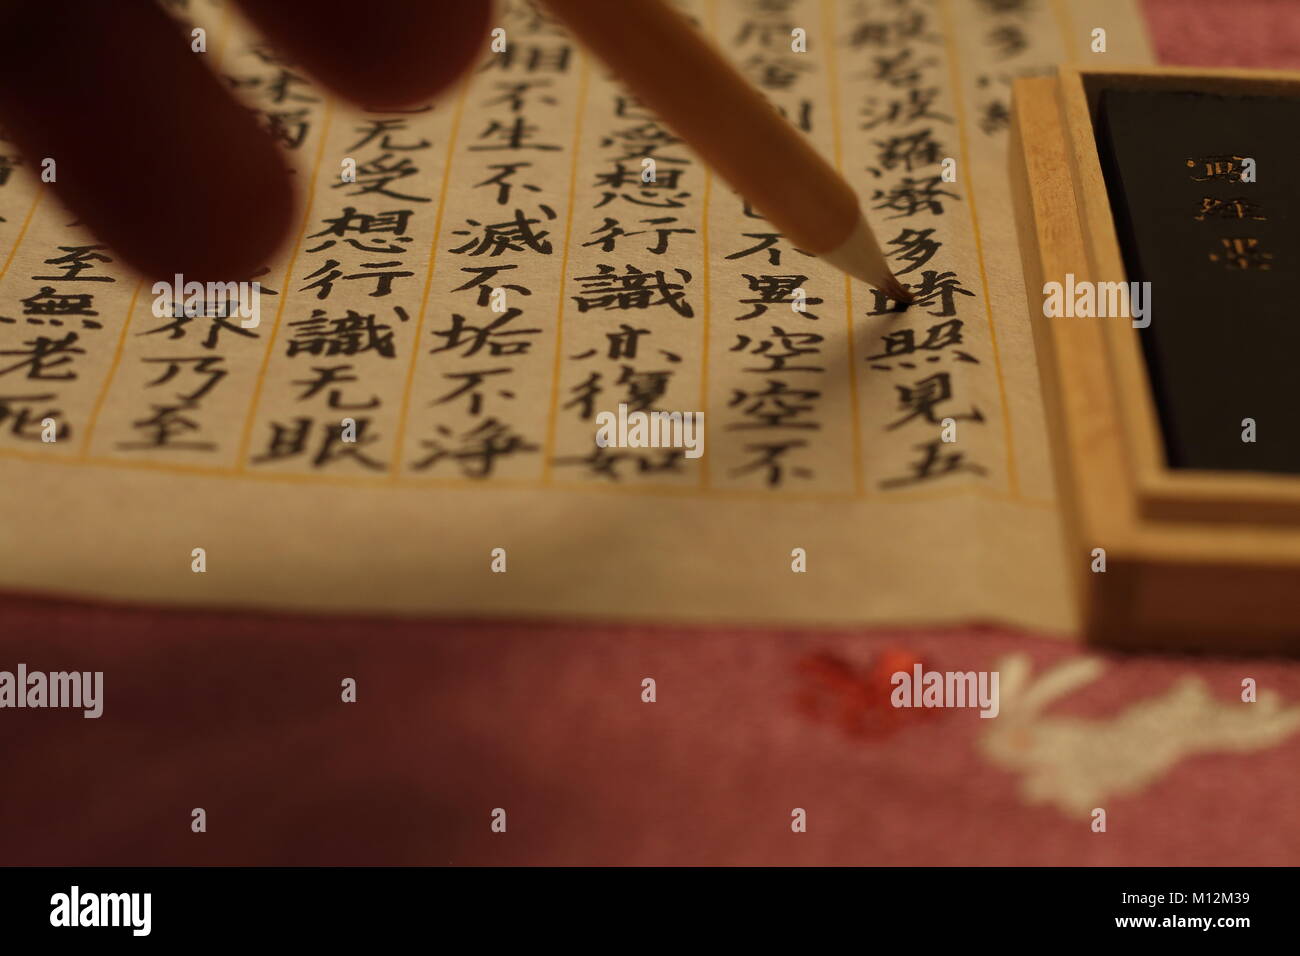 多心經
般若波羅蜜多時照見五
厄舍利 不異空空不
受想行識亦復如
相不生不滅不垢不淨
无受想行識无眼
味觸 界乃至
至無老死
寫經墨
alamy
alamy
Image ID: M12M39
www.alamy.com